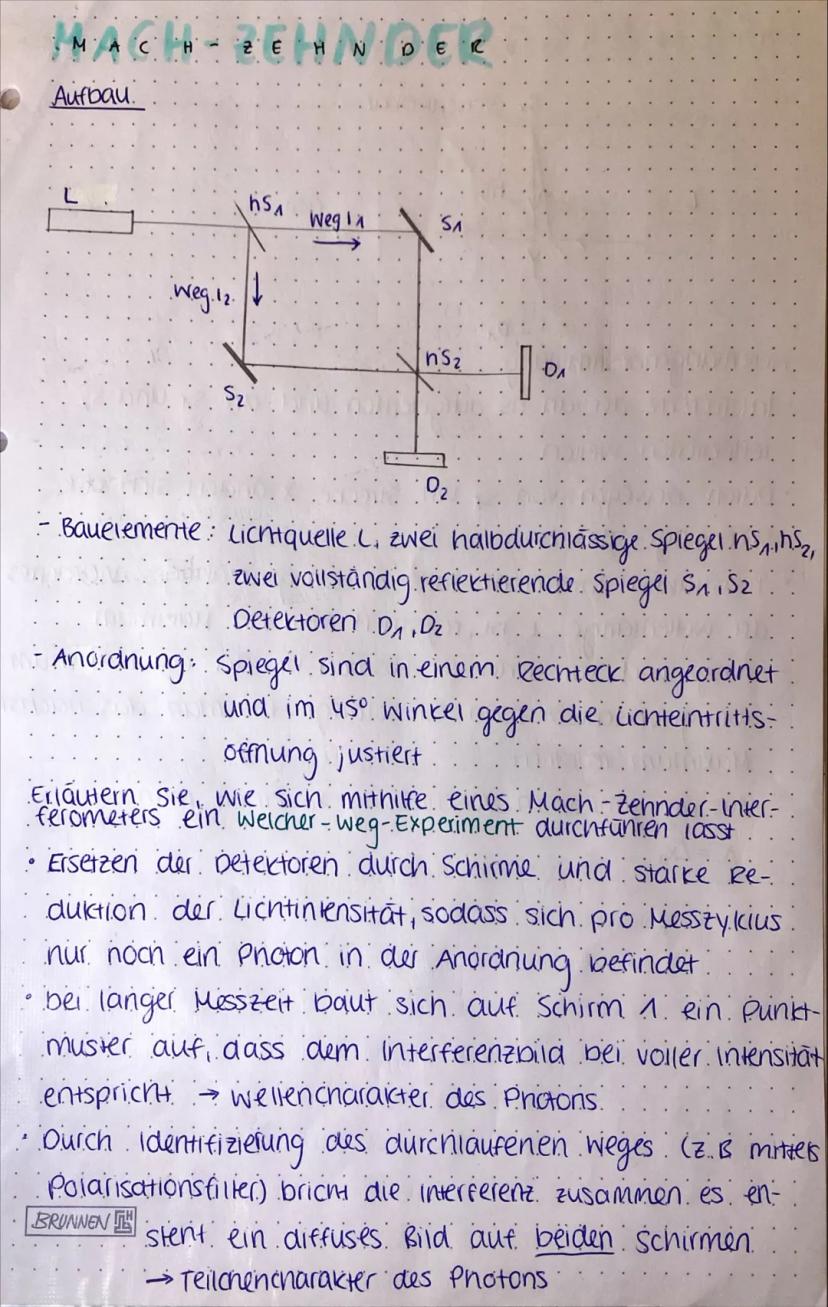 MACH-ZEHNDER
Aufbau
L
hS1
Weg l1
S1
Weg l2
hS2
D1
S2
D2
- Bauelemente: Lichtquelle L, zwei halbdurchlässige Spiegel hS1, hS2,
zwei vollständig reflektierende Spiegel S1, S2
Detektoren D1, D2
- Anordnung: Spiegel sind in einem Rechteck angeordnet
und im 45° Winkel gegen die Lichteintritts-
öffnung justiert
Erläutern Sie, wie sich mithilfe eines Mach-Zehnder-Inter-
ferometers ein Welcher-Weg-Experiment durchführen lässt
• Ersetzen der Detektoren durch Schirme und starke Re-
duktion der Lichtintensität, sodass sich pro Messzyklus
nur noch ein Photon in der Anordnung befindet
• bei langer Messzeit baut sich auf Schirm 1 ein Punkt-
muster auf, dass dem Interferenzbild bei voller Intensität
entspricht → Wellencharakter des Photons
• Durch Identifizierung des durchlaufenen Weges (z.B mittels
Polarisationsfilter) bricht die Interferenz zusammen es en-
BRUNNEN
steht ein diffuses Bild auf beiden Schirmen
→ Teilchencharakter des Photons